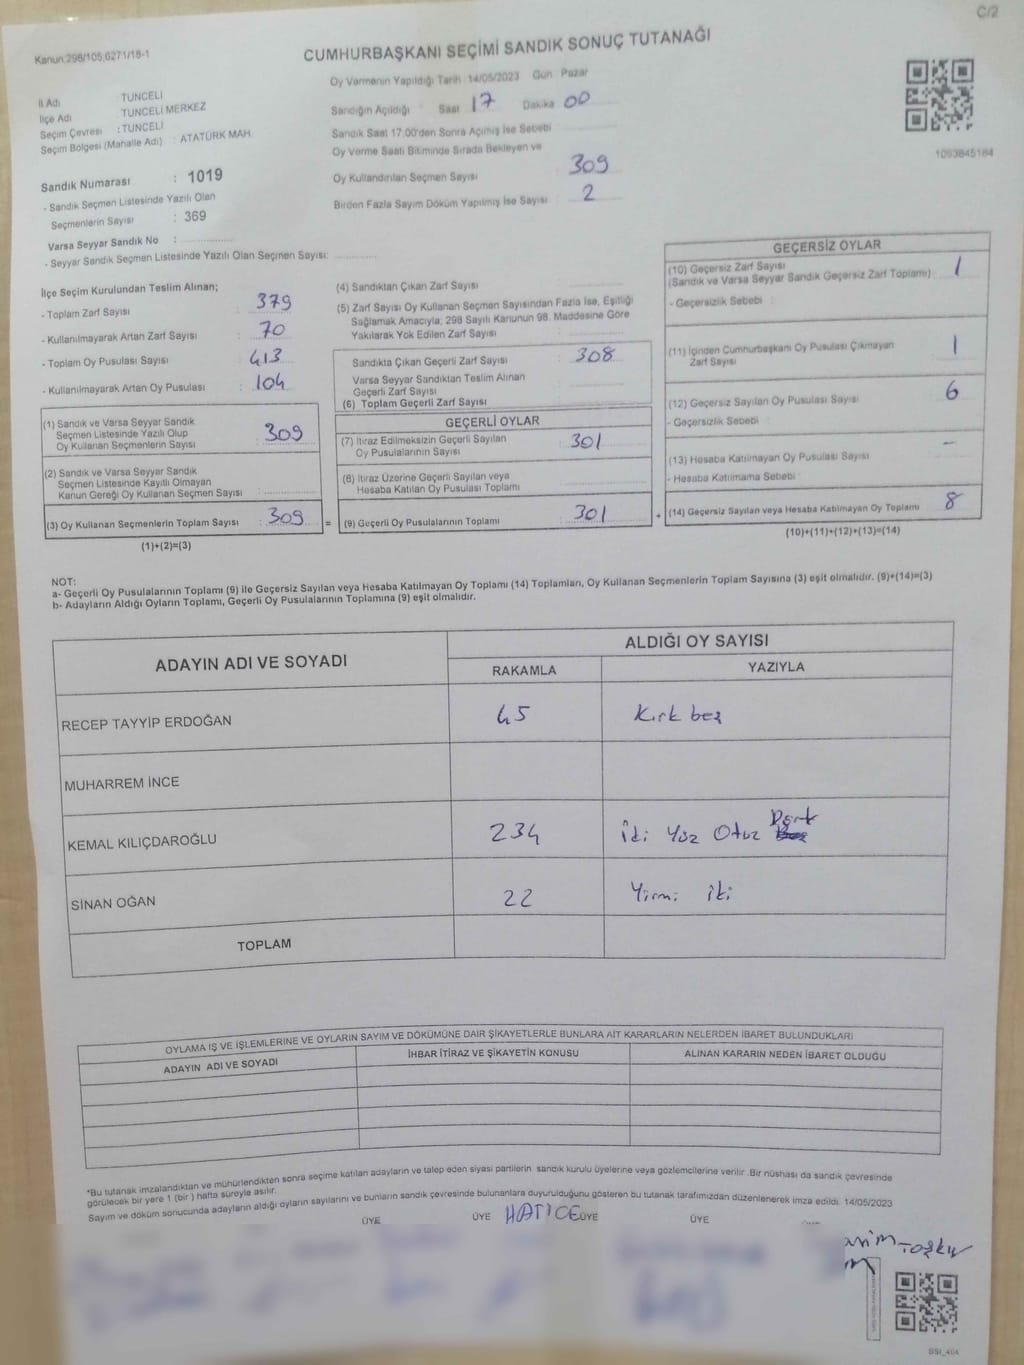 C/2
Kanun:298/105;6271/18-1
CUMHURBAŞKANI SEÇİMİ SANDIK SONUÇ TUTANAĞI
İl Adı TUNCELİ
İlçe Adı TUNCELİ MERKEZ
Seçim Çevresi : TUNCELİ
Seçim Bölgesi (Mahalle Adı) : ATATÜRK MAH.
Sandık Numarası : 1019
- Sandık Seçmen Listesinde Yazılı Olan
Seçmenlerin Sayısı : 369
Varsa Seyyar Sandık No :
- Seyyar Sandık Seçmen Listesinde Yazılı Olan Seçmen Sayısı:
Oy Vermenin Yapıldığı Tarih :14/05/2023 Gün Pazar
Sandığın Açıldığı Saat 17 Dakika 00
Sandık Saat 17:00'den Sonra Açılmış İse Sebebi
Oy Verme Saati Bitiminde Sırada Bekleyen ve
Oy Kullandırılan Seçmen Sayısı 309
Birden Fazla Sayım Döküm Yapılmış İse Sayısı 2
1093845184
İlçe Seçim Kurulundan Teslim Alınan;
- Toplam Zarf Sayısı : 379
- Kullanılmayarak Artan Zarf Sayısı : 70
- Toplam Oy Pusulası Sayısı : 413
- Kullanılmayarak Artan Oy Pusulası : 104
(1) Sandık ve Varsa Seyyar Sandık
Seçmen Listesinde Yazılı Olup
Oy Kullanan Seçmenlerin Sayısı : 309
(2) Sandık ve Varsa Seyyar Sandık
Seçmen Listesinde Kayıtlı Olmayan
Kanun Gereği Oy Kullanan Seçmen Sayısı :
(3) Oy Kullanan Seçmenlerin Toplam Sayısı : 309
(1)+(2)=(3)
=
(4) Sandıktan Çıkan Zarf Sayısı
(5) Zarf Sayısı Oy Kullanan Seçmen Sayısından Fazla İse, Eşitliği
Sağlamak Amacıyla; 298 Sayılı Kanunun 98. Maddesine Göre
Yakılarak Yok Edilen Zarf Sayısı
Sandıkta Çıkan Geçerli Zarf Sayısı : 308
Varsa Seyyar Sandıktan Teslim Alınan
Geçerli Zarf Sayısı
(6) Toplam Geçerli Zarf Sayısı
GEÇERLİ OYLAR
(7) İtiraz Edilmeksizin Geçerli Sayılan
Oy Pusulalarının Sayısı : 301
(8) İtiraz Üzerine Geçerli Sayılan veya
Hesaba Katılan Oy Pusulası Toplamı
(9) Geçerli Oy Pusulalarının Toplamı : 301
+
GEÇERSİZ OYLAR
(10) Geçersiz Zarf Sayısı
(Sandık ve Varsa Seyyar Sandık Geçersiz Zarf Toplamı) : 1
- Geçersizlik Sebebi :
(11) İçinden Cumhurbaşkanı Oy Pusulası Çıkmayan
Zarf Sayısı 1
(12) Geçersiz Sayılan Oy Pusulası Sayısı 6
- Geçersizlik Sebebi :
(13) Hesaba Katılmayan Oy Pusulası Sayısı -
- Hesaba Katılmama Sebebi
(14) Geçersiz Sayılan veya Hesaba Katılmayan Oy Toplamı 8
(10)+(11)+(12)+(13)=(14)
NOT:
a- Geçerli Oy Pusulalarının Toplamı (9) ile Geçersiz Sayılan veya Hesaba Katılmayan Oy Toplamı (14) Toplamları, Oy Kullanan Seçmenlerin Toplam Sayısına (3) eşit olmalıdır. (9)+(14)=(3)
b- Adayların Aldığı Oyların Toplamı, Geçerli Oy Pusulalarının Toplamına (9) eşit olmalıdır.
ADAYIN ADI VE SOYADI ALDIĞI OY SAYISI
RAKAMLA YAZIYLA
RECEP TAYYİP ERDOĞAN 45 Kırk beş
MUHARREM İNCE
KEMAL KILIÇDAROĞLU 234 İki Yüz Otuz Dört
SİNAN OĞAN 22 Yirmi iki
TOPLAM
OYLAMA İŞ VE İŞLEMLERİNE VE OYLARIN SAYIM VE DÖKÜMÜNE DAİR ŞİKAYETLERLE BUNLARA AİT KARARLARIN NELERDEN İBARET BULUNDUKLARI
ADAYIN ADI VE SOYADI İHBAR İTİRAZ VE ŞİKAYETİN KONUSU ALINAN KARARIN NEDEN İBARET OLDUĞU
*Bu tutanak imzalandıktan ve mühürlendikten sonra seçime katılan adayların ve talep eden siyasi partilerin sandık kurulu üyelerine veya gözlemcilerine verilir. Bir nüshası da sandık çevresinde
görülecek bir yere 1 (bir) hafta süreyle asılır.
Sayım ve döküm sonucunda adayların aldığı oyların sayılarını ve bunların sandık çevresinde bulunanlara duyurulduğunu gösteren bu tutanak tarafımızdan düzenlenerek imza edildi. 14/05/2023
ÜYE ÜYE HATİCE ÜYE ÜYE